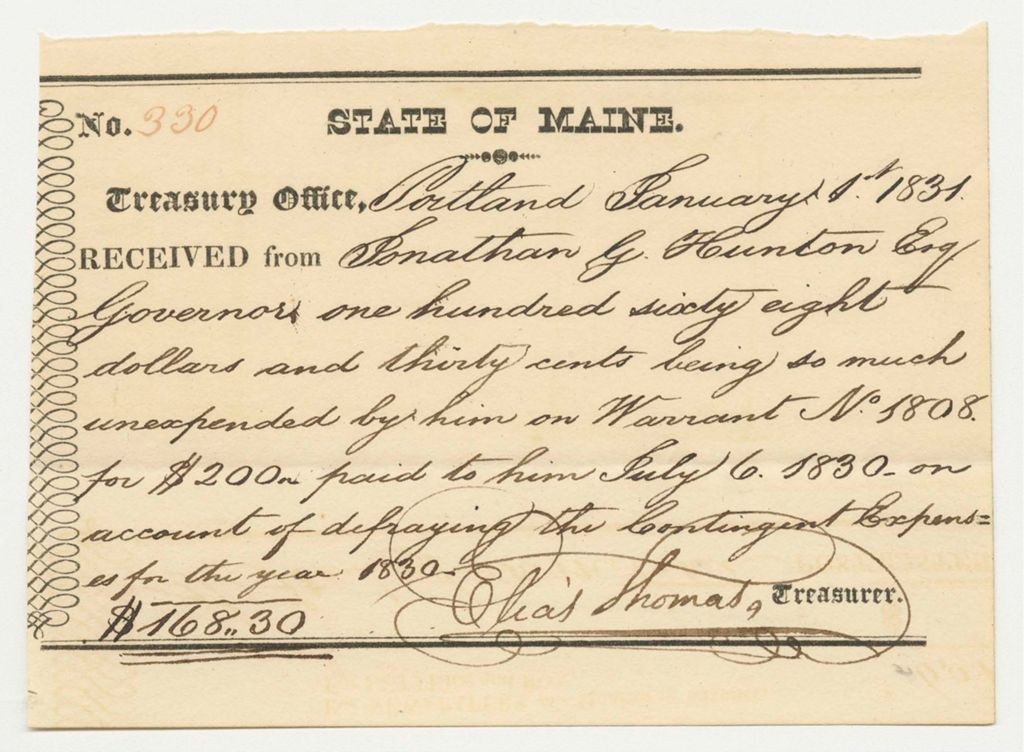 No. 330 STATE OF MAINE.
Treasury Office, Portland January 1st 1831.
RECEIVED from Jonathan G. Hunton Esq
Governor one hundred sixty eight
dollars and thirty cents being so much
unexpended by him on Warrant No 1808.
for $200.. paid to him July 6. 1830 - on
account of defraying the Contingent Expens=
es for the year 1830 -
$168..30 Elias Thomas, Treasurer.